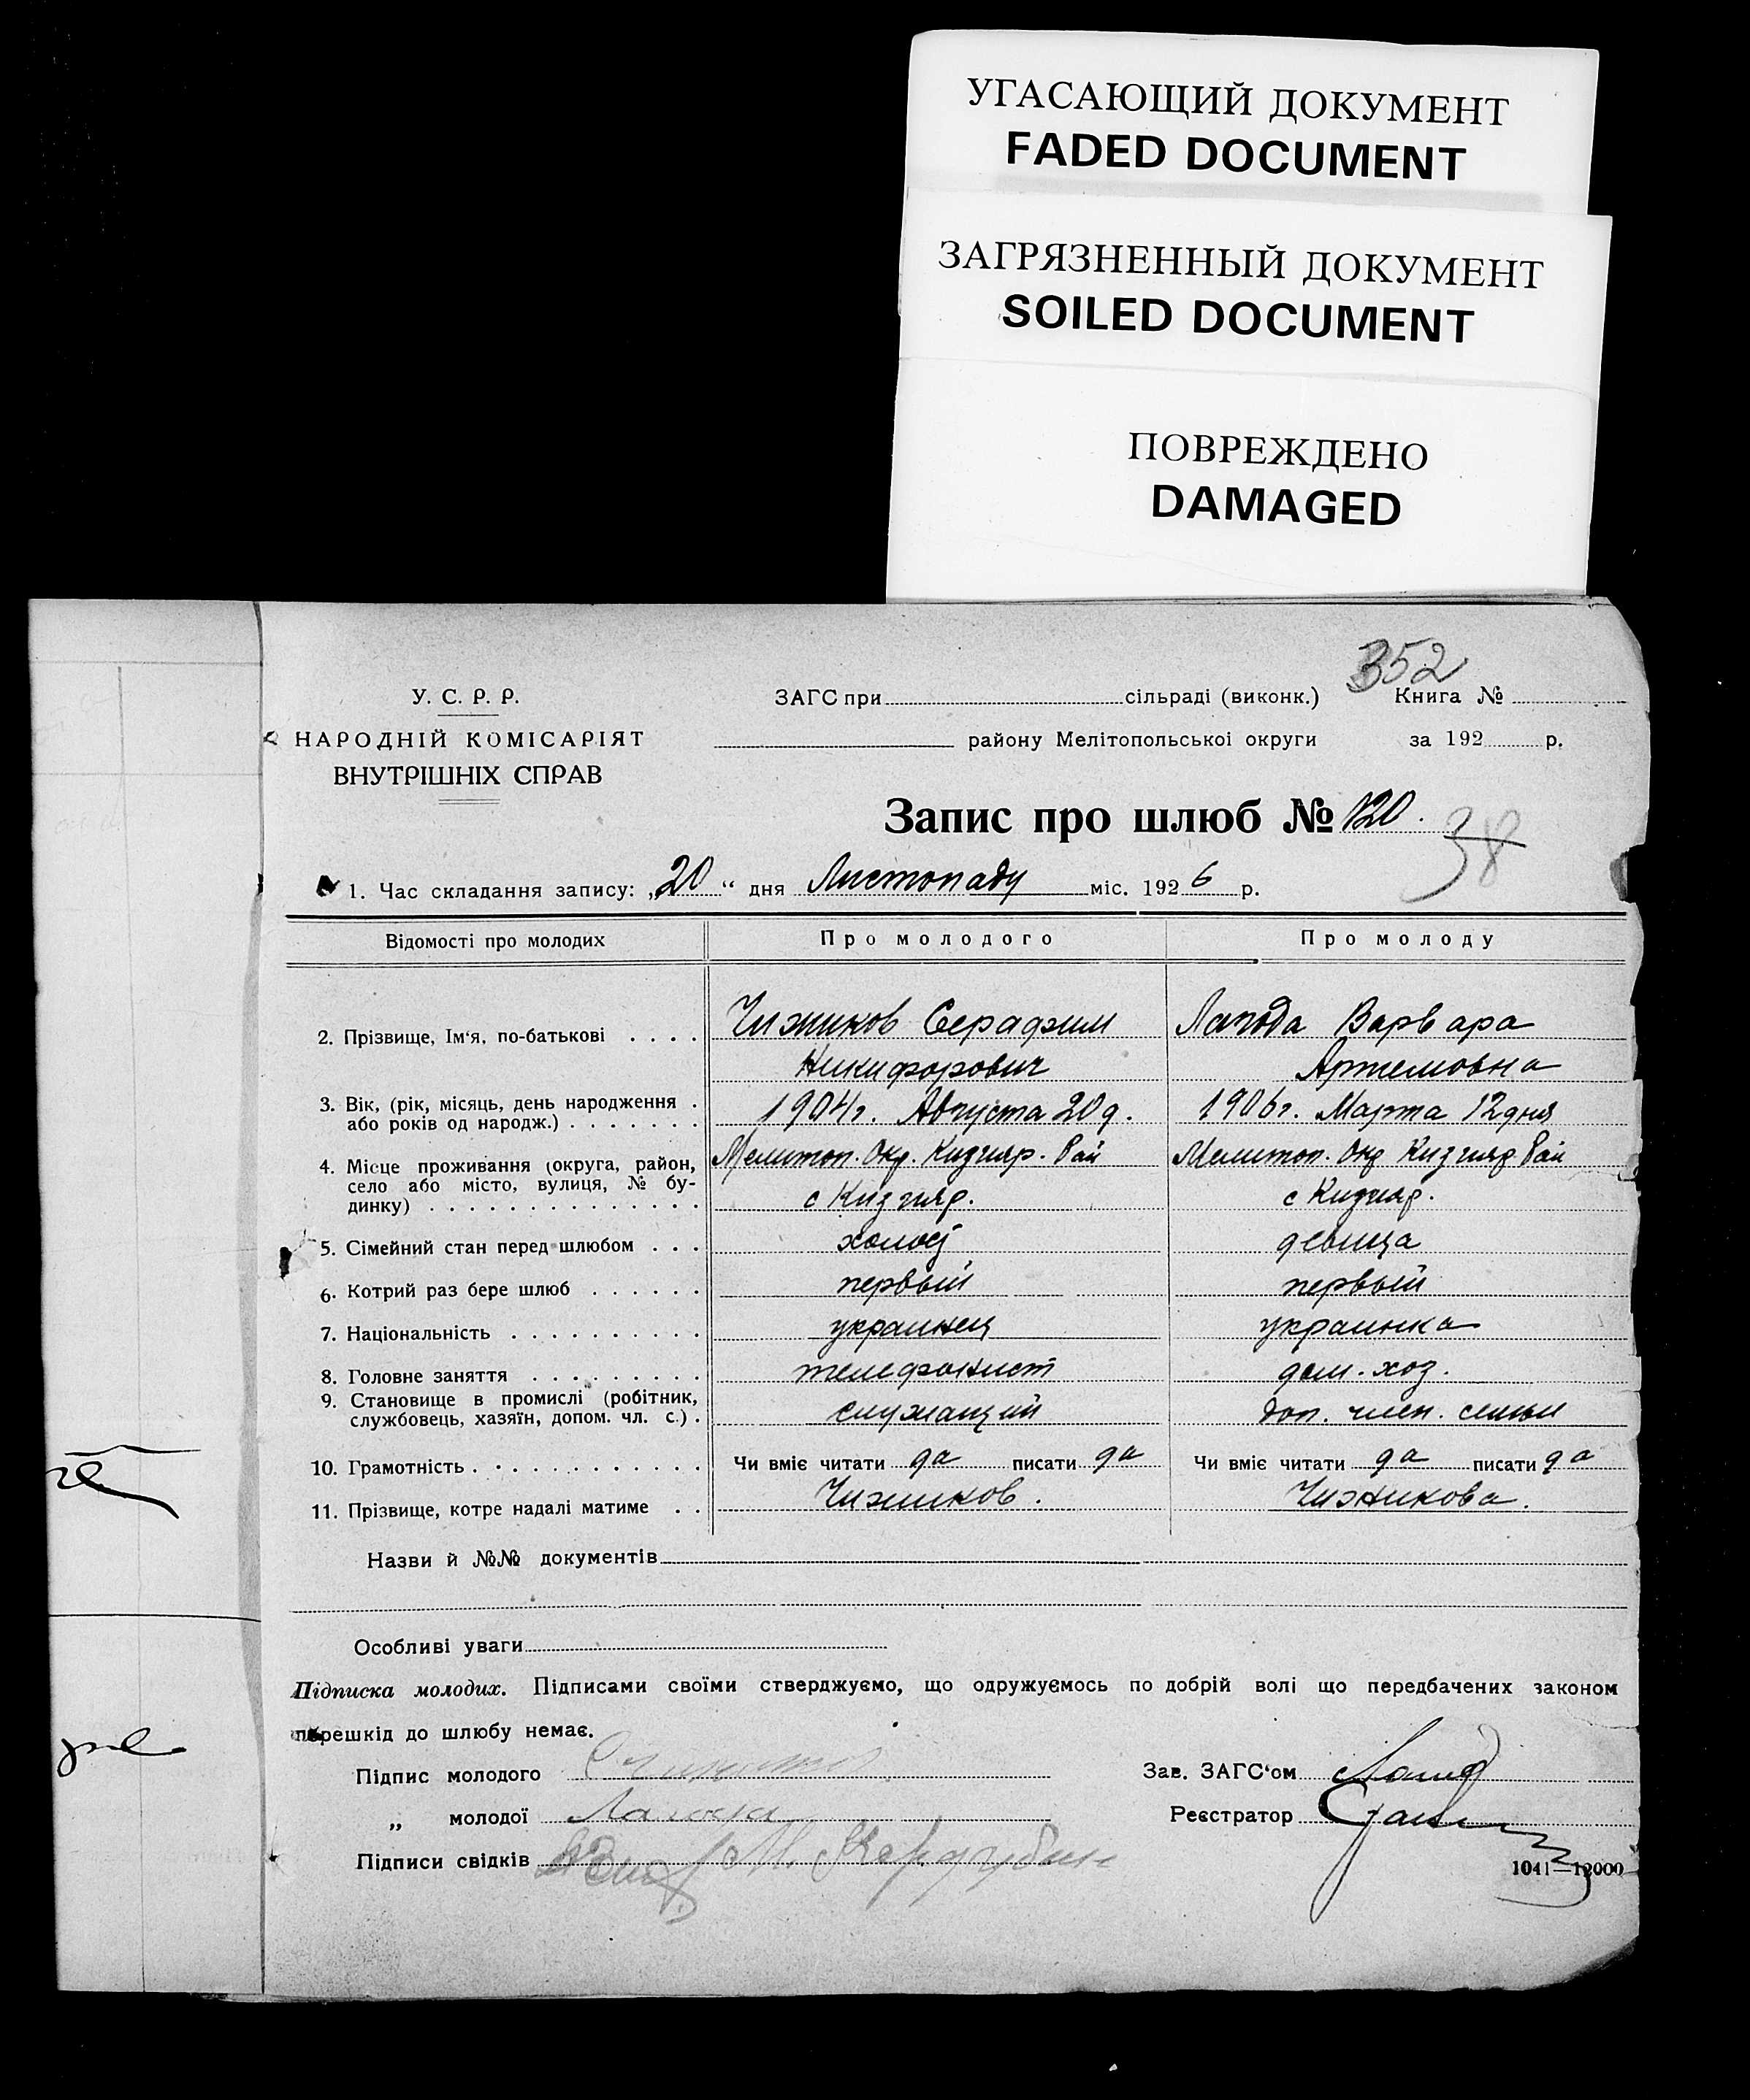 УГАСАЮЩИЙ ДОКУМЕНТ
FADED DOCUMENT
ЗАГРЯЗНЕННЫЙ ДОКУМЕНТ
SOILED DOCUMENT
ПОВРЕЖДЕНО
DAMAGED
352
У. С. Р. Р.
НАРОДНІЙ КОМІСАРІЯТ
ВНУТРІШНІХ СПРАВ
ЗАГС при сільраді (виконк.) Книга №
району Мелітопольської округи за 192 р.
Запис про шлюб № 120.
38
1. Час складання запису: „20“ дня Листопаду міс. 1926 р.
Відомості про молодих Про молодого Про молоду
2. Прізвище, Ім‘я, по-батькові . . . . Чижиков Серафим Лагода Варвара
Никифорович Артемовна
3. Вік, (рік, місяць, день народження . або років од народж.) . . . . . . . 1904 г. Августа 20 д. 1906 г. Марта 12 дня
4. Місце проживання (округа, район, Мелитоп. Окр. Кизияр. Рай Мелитоп. Окр Кизияр Рай
село або місто, вулиця, № бу- с Кизияр. с Кизияр.
динку) . . . . . . . . . . . . . .
5. Сімейний стан перед шлюбом . . . холост девица
6. Котрий раз бере шлюб . . . . . . первый первый
7. Національність . . . . . . . . . . украинец украинка
8. Головне заняття . . . . . . . . . телефонист дом. хоз.
9. Становище в промислі (робітник,
службовець, хазяїн, допом. чл. с.) . служащий доп. член. семьи
10. Грамотність . . . . . . . . . . . . Чи вміє читати да писати да Чи вміє читати да писати да
11. Прізвище, котре надалі матиме . . Чижиков. Чижикова.
Назви й №№ документів
Особливі уваги
Підписка молодих. Підписами своїми стверджуємо, що одружуємось по добрій волі що передбачених законом
перешкід до шлюбу немає.
Підпис молодого Зав. ЗАГС‘ом
„ молодої Лагода Реєстратор
Підписи свідків
1041—12000